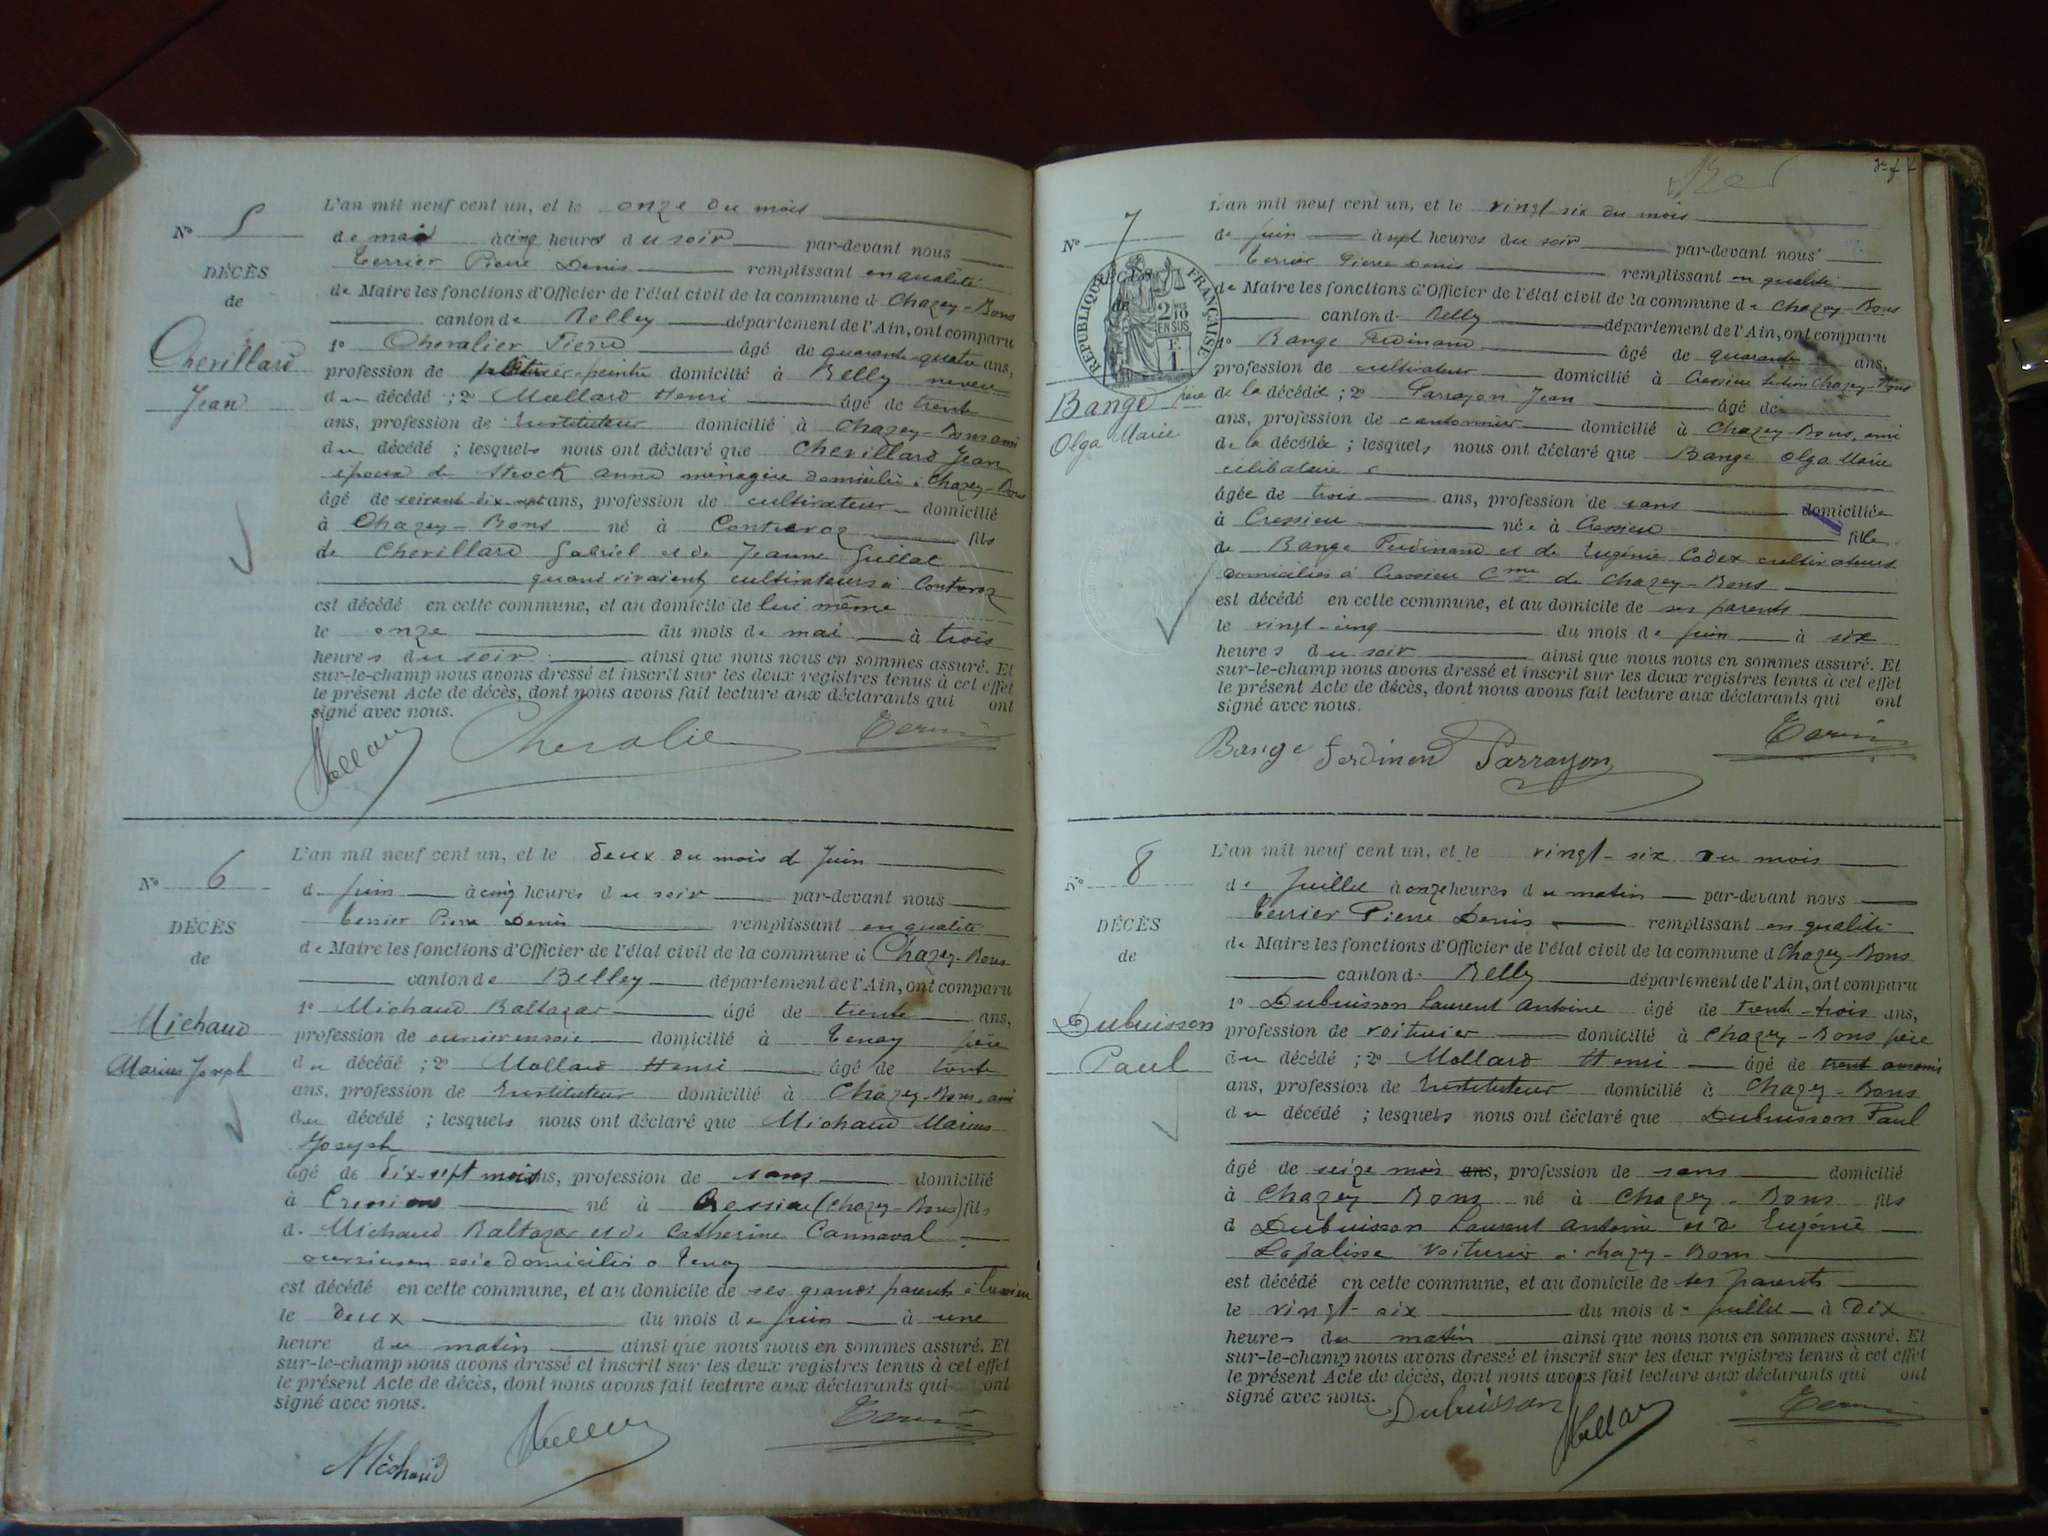 L'an mil neuf cent un, et le onze du mois
Nº 5
de mai à cinq heures du soir par-devant nous
DÉCÈS
Terrier Pierre Denis remplissant en qualité
de
de Maire les fonctions d'Officier de l'état civil de la commune d Chazey-Bons
canton de Belley département de l'Ain, ont comparu
Chevillard
1º Chevalier Pierre âgé de quarante-quatre ans,
profession de plâtrier-peintre domicilié à Belley neveu
Jean
du décédé ; 2º Mollard Henri âgé de trente
ans, profession de Instituteur domicilié à Chazey-Bons ami
du décédé ; lesquels nous ont déclaré que Chevillard Jean
époux de Strock anne ménagère domiciliée à Chazey-Bons
âgé de soixante-dix-sept ans, profession de cultivateur domicilié
à Chazey-Bons né à Contrevoz fils
de Chevillard Gabriel et de Jeanne Guillat
quand vivaient cultivateurs à Contrevoz
est décédé en cette commune, et au domicile de lui même
le onze du mois de mai à trois
heures du soir ainsi que nous nous en sommes assuré. Et
sur-le-champ nous avons dressé et inscrit sur les deux registres tenus à cet effet
le présent Acte de décès, dont nous avons fait lecture aux déclarants qui ont
signé avec nous.
Mollard Chevalier Terrier
L'an mil neuf cent un, et le deux du mois d Juin
Nº 6
de juin à cinq heures du soir par-devant nous
DÉCÈS
Terrier Pierre Denis remplissant en qualité
de
de Maire les fonctions d'Officier de l'état civil de la commune d Chazey-Bons
canton de Belley département de l'Ain, ont comparu
Michaud
1º Michaud Baltazar âgé de trente ans,
profession de ouvrier en soie domicilié à Tenay père
Marius Joseph
du décédé ; 2º Mollard Henri âgé de trente
ans, profession de Instituteur domicilié à Chazey-Bons, ami
du décédé ; lesquels nous ont déclaré que Michaud Marius
Joseph
âgé de dix-sept mois ans, profession de sans domicilié
à Cressieu né à Cressieu (Chazey-Bons) fils
d. Michaud Baltazar et de Catherine Cannaval
ouvriers en soie domiciliés à Tenay
est décédé en cette commune, et au domicile de ses grands parents à Cressieu
le deux du mois de juin à une
heure du matin ainsi que nous nous en sommes assuré. Et
sur-le-champ nous avons dressé et inscrit sur les deux registres tenus à cet effet
le présent Acte de décès, dont nous avons fait lecture aux déclarants qui ont
signé avec nous.
Michaud Mollard Terrier
L'an mil neuf cent un, et le vingt six du mois
Nº 7
de juin à sept heures du soir par-devant nous
DÉCÈS
Terrier Pierre Denis remplissant en qualité
de
RÉPUBLIQUE FRANÇAISE
2 10
EN SUS
F.
1
de Maire les fonctions d'Officier de l'état civil de la commune de Chazey-Bons
canton d. Belley département de l'Ain, ont comparu
1º Bange Ferdinand âgé de quarante ans,
profession de cultivateur domicilié à Cressieu section Chazey-Bons
Bange
père de la décédée ; 2º Parrayon Jean âgé de
Olga Marie
ans, profession de cantonnier domicilié à Chazey-Bons, ami
de la décédée ; lesquels nous ont déclaré que Bange Olga Marie
célibataire
âgée de trois ans, profession de sans domiciliée
à Cressieu née à Cressieu fille
de Bange Ferdinand et de Eugénie Codex cultivateurs
domiciliés à Cressieu Cme de Chazey-Bons
est décédé en cette commune, et au domicile de ses parents
le vingt-cinq du mois de juin à six
heures du soir ainsi que nous nous en sommes assuré. Et
sur-le-champ nous avons dressé et inscrit sur les deux registres tenus à cet effet
le présent Acte de décès, dont nous avons fait lecture aux déclarants qui ont
signé avec nous.
Bange Ferdinend Parrayon Terrier
L'an mil neuf cent un, et le vingt-six du mois
Nº 8
de Juillet à onze heures du matin par-devant nous
DÉCÈS
Terrier Pierre Denis remplissant en qualité
de
de Maire les fonctions d'Officier de l'état civil de la commune d Chazey-Bons
canton d. Belley département de l'Ain, ont comparu
Dubuisson
1º Dubuisson Laurent Antoine âgé de trente-trois ans,
profession de voiturier domicilié à Chazey-Bons père
Paul
du décédé ; 2º Mollard Henri âgé de trente ans ami
ans, profession de Instituteur domicilié à Chazey-Bons
du décédé ; lesquels nous ont déclaré que Dubuisson Paul
âgé de seize mois ans, profession de sans domicilié
à Chazey-Bons né à Chazey-Bons fils
d Dubuisson Laurent Antoine et de Eugénie
Lapalisse voiturier à Chazey-Bons
est décédé en cette commune, et au domicile de ses parents
le vingt-six du mois de juillet à dix
heures du matin ainsi que nous nous en sommes assuré. Et
sur-le-champ nous avons dressé et inscrit sur les deux registres tenus à cet effet
le présent Acte de décès, dont nous avons fait lecture aux déclarants qui ont
signé avec nous.
Dubuisson Mollard Terrier